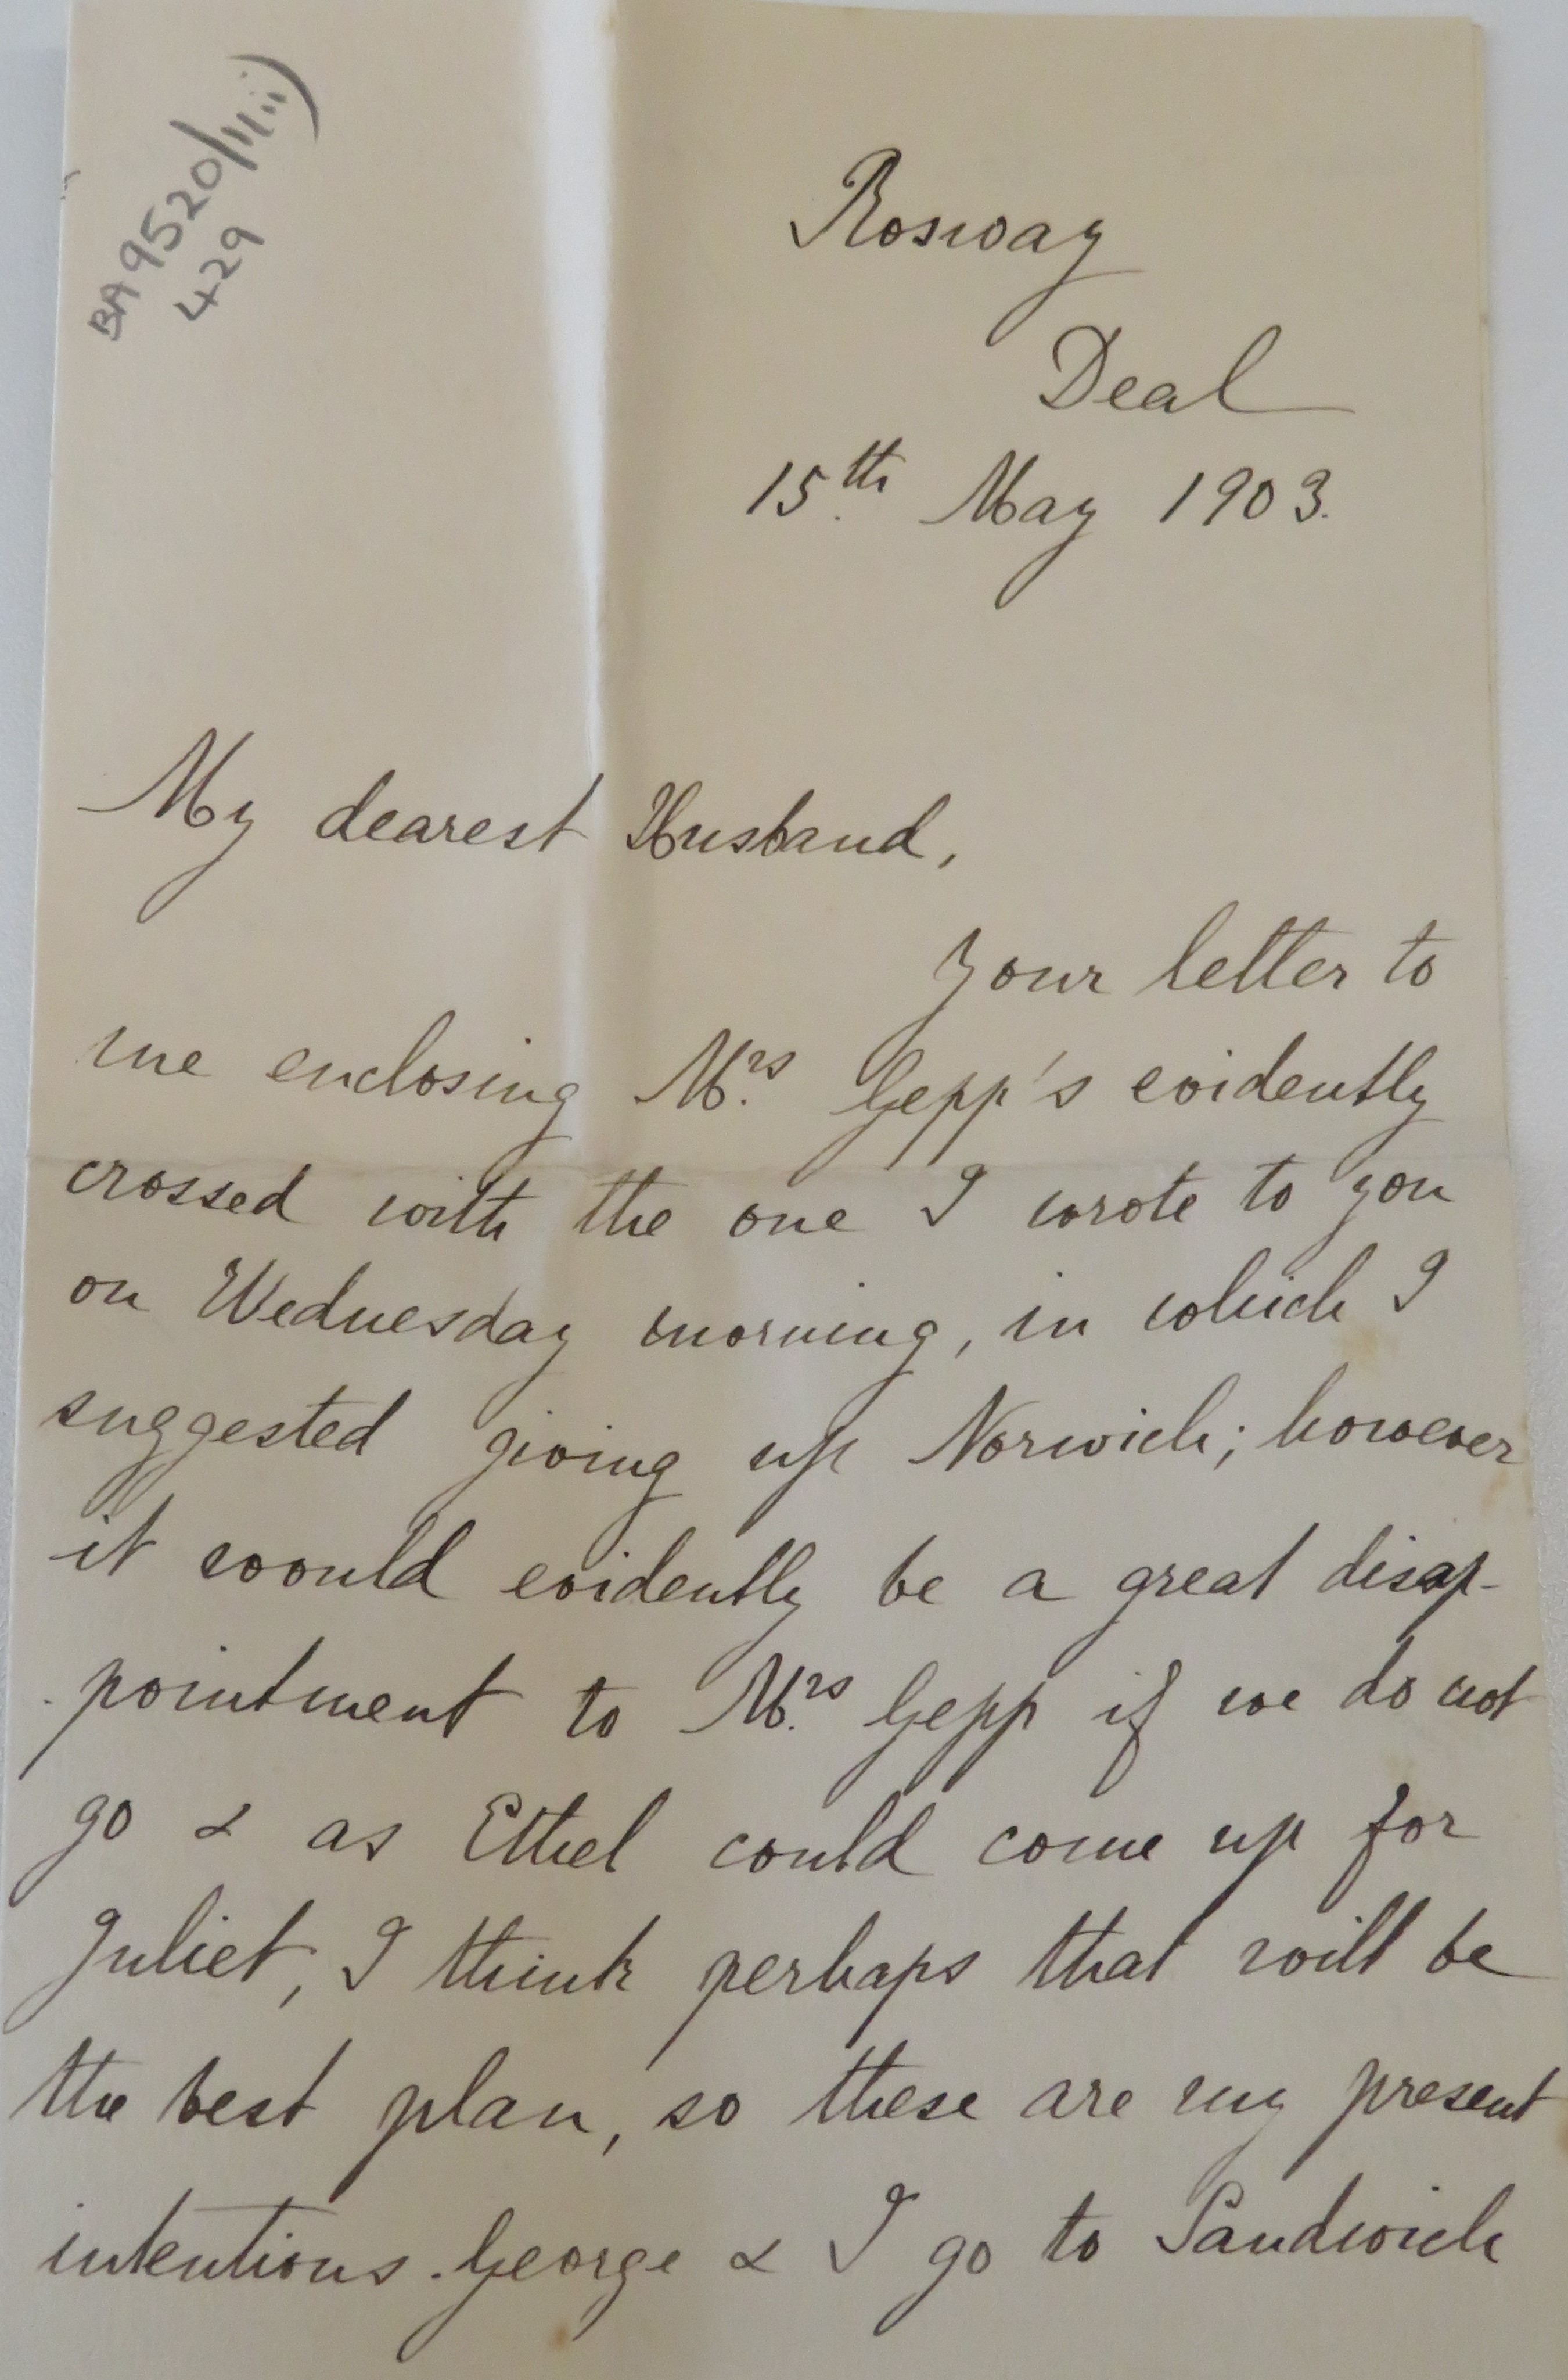 BA9520/11ii)
429
Rosway
Deal
15th May 1903.
My dearest Husband,
Your letter to
me enclosing Mrs. Gepp's evidently
crossed with the one I wrote to you
on Wednesday morning, in which I
suggested giving up Norwich; however
it would evidently be a great disap-
pointment to Mrs. Gepp if we do not
go & as Ethel could come up for
Juliet, I think perhaps that will be
the best plan, so these are my present
intentions. George & I go to Sandwich